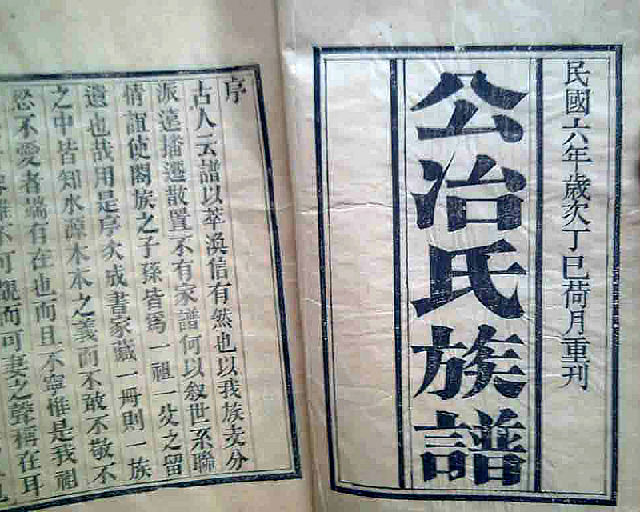 民國六年歲次丁巳荷月重刊
公冶氏族譜
序
古人云譜以萃渙信有然也以我族支分
派遠播遷散置不有家譜何以叙世系聯
情誼使闔族之子孫皆爲一祖一父之留
遺也哉用是序次成書家藏一冊則一族
之中皆知水源木本之義而不敢不敬不
忍不愛者端有在也而且不寧惟是我祖
不可親而可妻之聲稱在耳